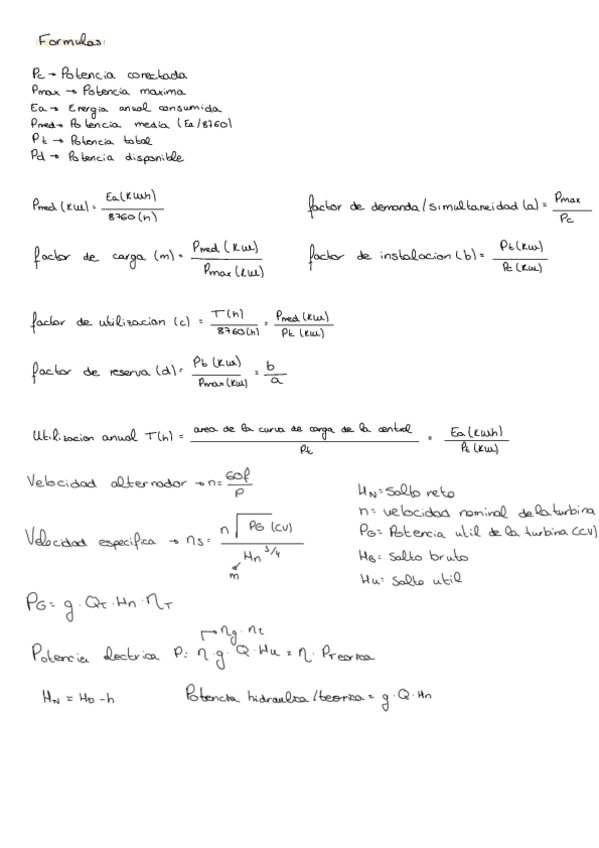 Formulas:
Pc → Potencia conectada
Pmax → Potencia maxima
Ea → Energia anual consumida
Pmed → Potencia media (Ea/8760)
Pt → Potencia total
Pd → Potencia disponible
Pmed (KW) = Ea (KWh) / 8760 (h)
factor de demanda / simultaneidad (a) = Pmax / Pc
factor de carga (m) = Pmed (KW) / Pmax (KW)
factor de instalacion (b) = Pt (KW) / Pc (KW)
factor de utilizacion (c) = T (h) / 8760 (h) = Pmed (KW) / Pt (KW)
factor de reserva (d) = Pt (KW) / Pmax (KW) = b / a
Utilizacion anual T(h) = area de la curva de carga de la central / Pt = Ea (KWh) / Pt (KW)
Velocidad alternador → n = 60f / P
Velocidad especifica → ns = n √PG (CV) / Hn^5/4
m
HN = Salto neto
n = velocidad nominal de la turbina
PG = Potencia util de la turbina (CV)
HB = Salto bruto
Hu = Salto util
PG = g · QT · Hn · ηT
→ ηg · ηt
Potencia electrica P = η · g · Q · Hu = η · Pteorica
HN = HD - h
Potencia hidraulica / teorica = g · Q · Hn